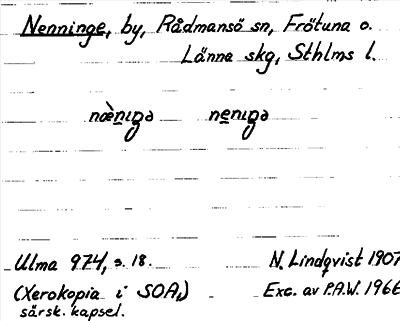 Nenninge, by, Rådmansö sn, Frötuna o.
Länna skg, Sthlms l.
næ̀nıgə nenıgə
Ulma 974, s. 18. N. Lindqvist 1907
(Xerokopia i SOA,) Exc. av P.A.W. 1966
särsk. kapsel.